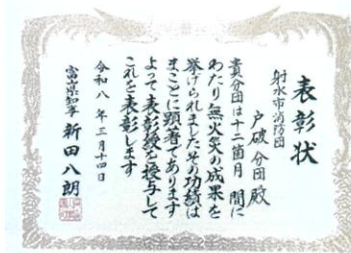 表彰状
射水市消防団
戸破分団殿
貴分団は十二箇月間に
わたり無火災の成果を
挙げられましたその功績は
まことに顕著であります
よって表彰綬を授与して
これを表彰します
令和八年三月十四日
富山県知事 新田八朗